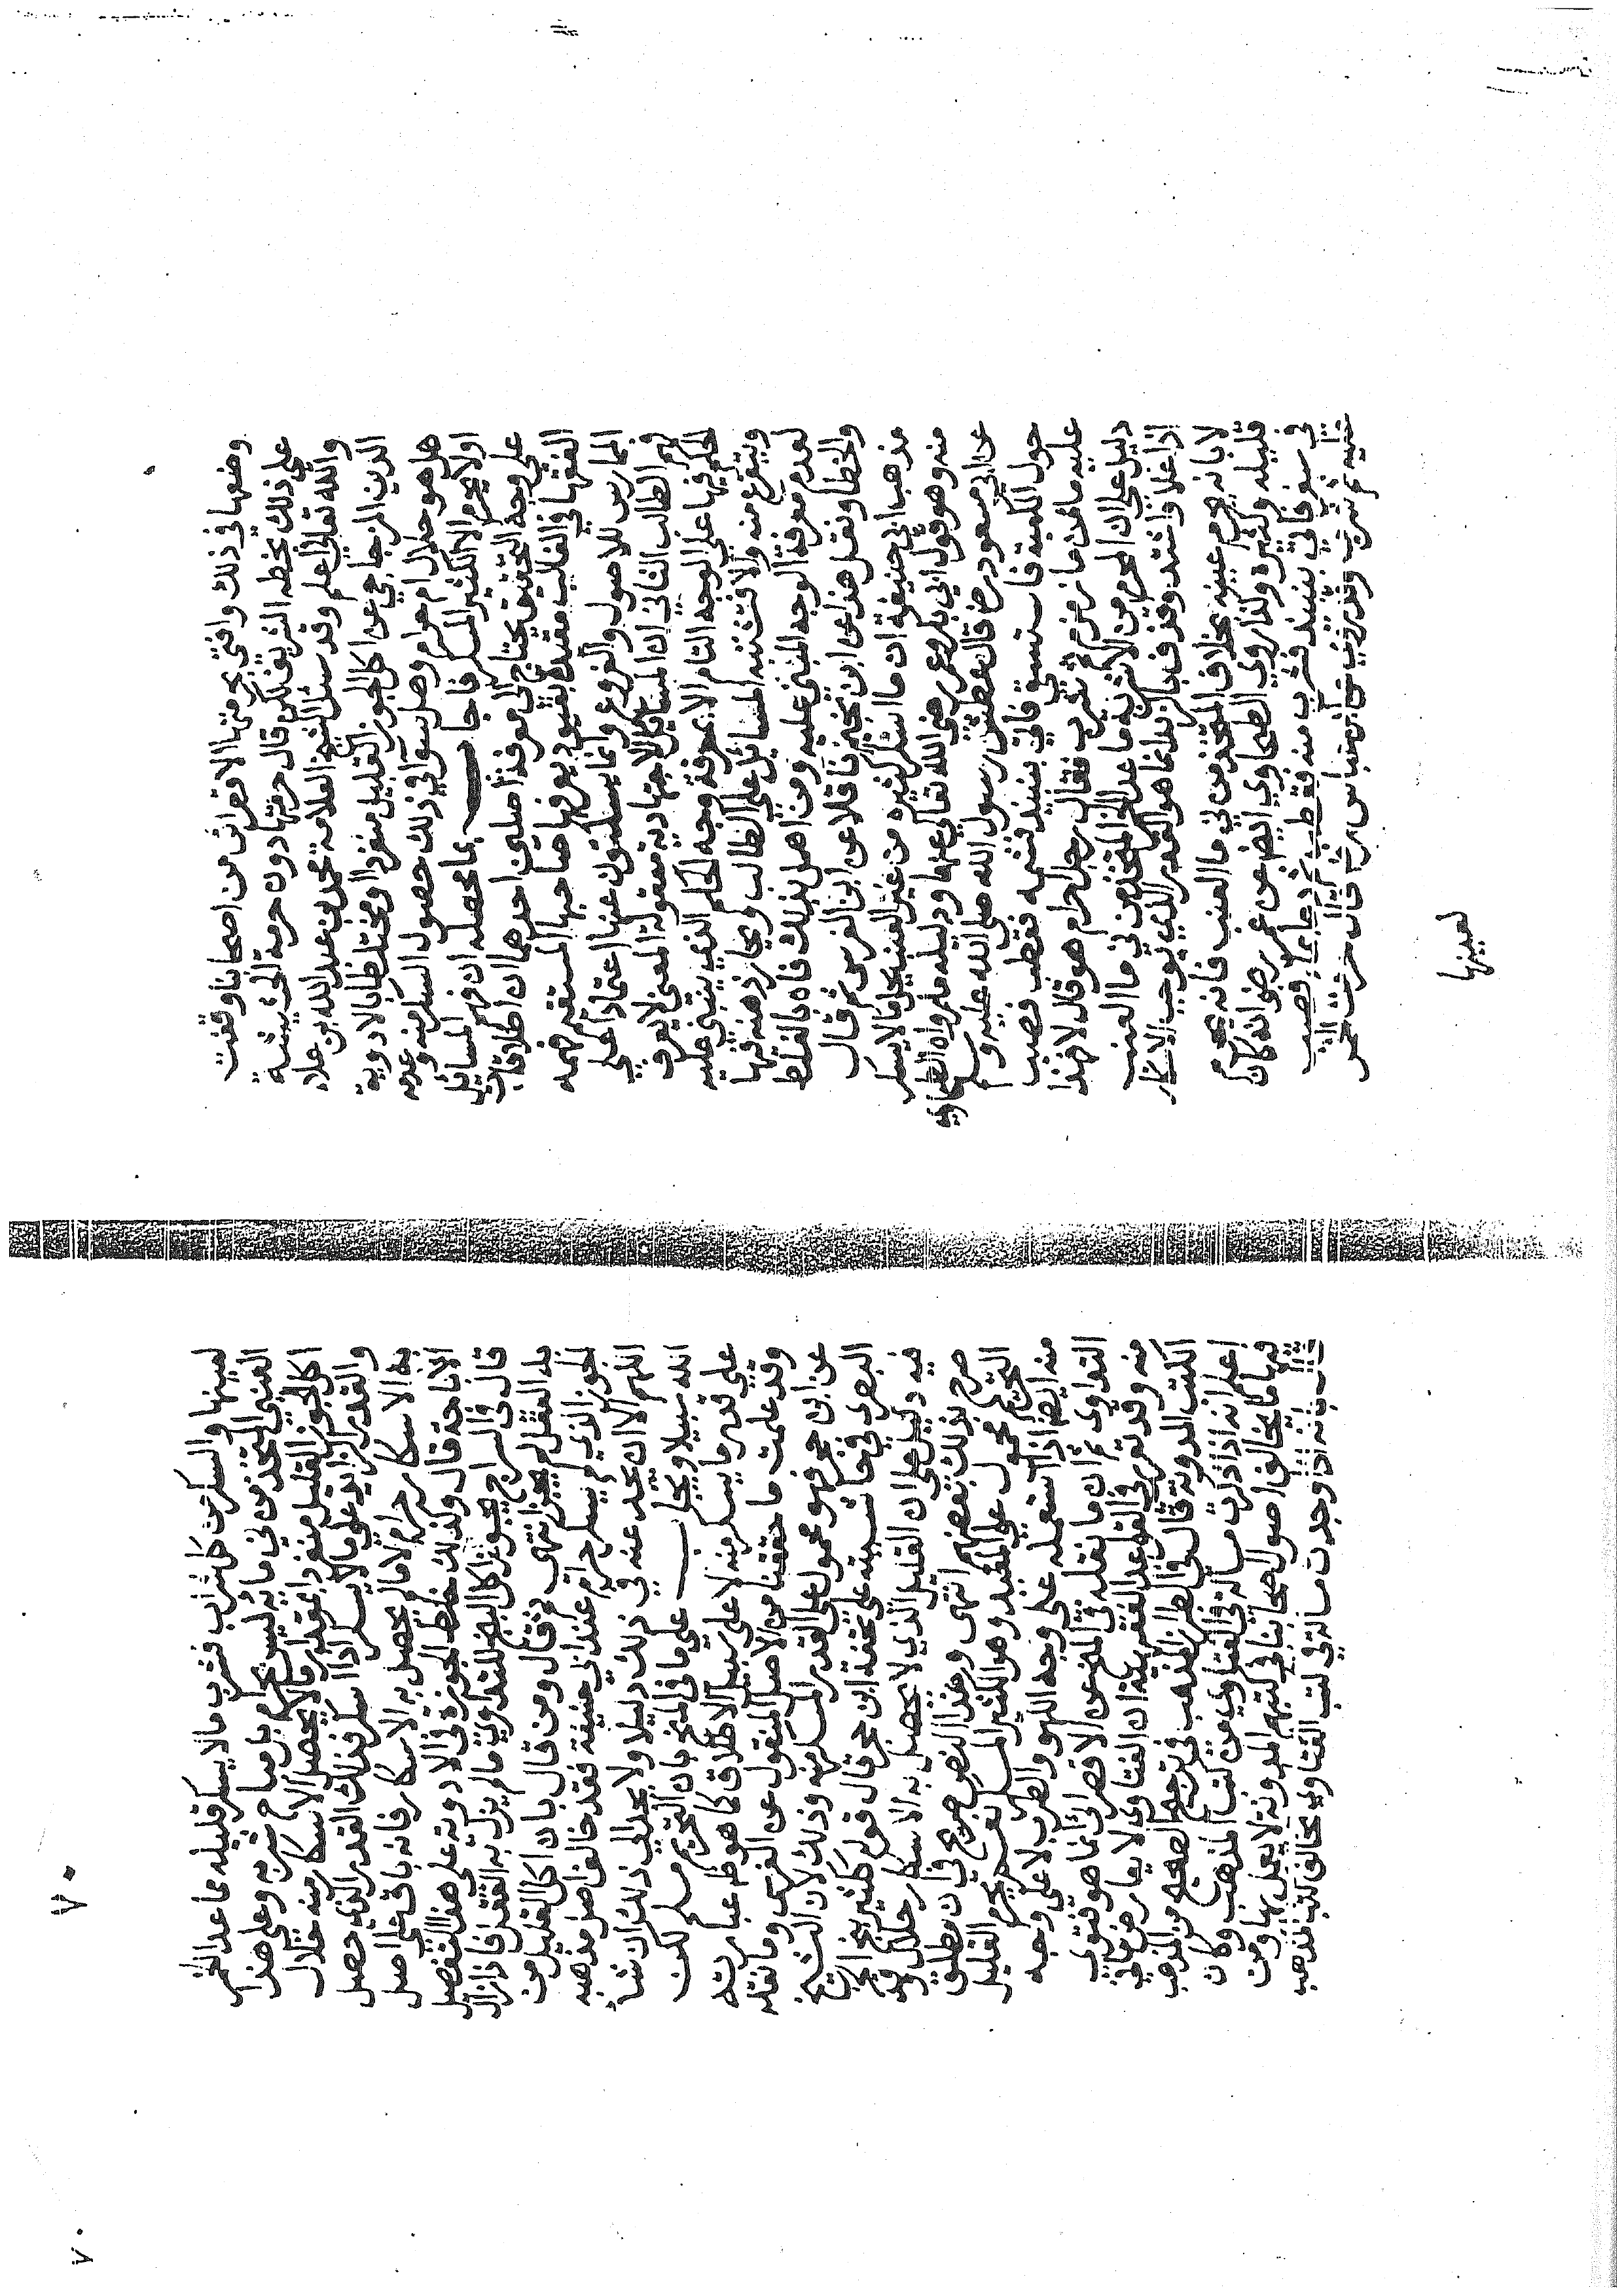 وضعها في ذلك وافتى بحرمتها الاقصراني من اصحابنا وقفت
على ذلك بخطه الشريف لكن قال حرمتها دون حرمة الحشيشة
والله تعالى اعلم وقد سئل الشيخ العلامة محمد بن عبد الله بن علاء
الدين المزجاجي عن اكل الجوز القليل منفردا ومختلطا بالادوية
هل هو حلال ام حرام وهل سوا في ذلك حصول السكر منه وعدمه
اولا يحرم الا الكثير المسكر فاجاب بما محصله ان فهم المسائل
على وجه التحقيق يحتاج الى معرفة اصلين احدهما ان اطلاقات
الفقهاء في الغالب مقيدة بقيود يعرفها صاحبها المستقيم فهمه
الممارس للاصول والفروع وانما يسكتون عنها اعتمادا على
فهم الطالب الثاني ان المسائل الاجتهادية معقولة المعنى لا يعرف
الحكم فيها على الوجه التام الا بمعرفة وجه الحكم الذي ينبني عليه
ويتفرع منه والا فتشتبه المسائل على الطالب ويحار ذهنه فيها
لعدم معرفة الوجه المبني عليه ومن اهمل ذلك فاه بالغلط
والخطا ونقل هذا عن ابن نجيم ناقلا عن ابن الغرس ثم قال
مذهب ابي حنيفة ان ما اسكر كثيره من غير العنب يحل ما لا يسكر
منه وهو قول ابي بكر وعمر رضي الله تعالى عنها ودليله ما رواه الطحاوي
عن ابي مسعود رض قال عطش رسول الله صلى الله عليه وسلم
حول الكعبة فاستسقى فاتي بنبيذ فشمه فقطب فصب
عليه ما من ماء زمزم ثم شرب فقال رجل احرام هو قال لا فهذا
دليل على ان المحرم من الاشربة ما عدا الخمر المتخذ من ني ما العنب
اذا غلا واشتد وقذف بالزبد انما هو القدر الذي يوجب الاسكار
لا بانه يحرم عينه بخلاف المتخذ من ني ما العنب فانه يحرم
قليله وكثيره ولذا روى الطحاوي ايضا عن عمر رض انه كان
في سفر فاتي بنبيذ فشرب منه فقطب ثم دعا بما فصب
عليه ثم شرب وقد ثبت عن ابن عباس رض قال حرمت الخمر
لعينها
لعينها والسكر من كل شراب فشرب ما لا يسكر قليله مما عدا الخمر
العنبي المتخذ من ني مائه ليس بحرام بل مباح شربه وعلى هذا
اكل الجوز القليل منفردا بمقدار ما لا يحصل الاسكار منه حلال
والقدر الزايد على ما لا يسكر اذا اسكر فذلك القدر الذي حصل
به الاسكار حرام لا ما لم يحصل به الاسكار فانه باق على اصل
الاباحة قال وكذلك خلط الجوزة في الادوية على هذا التفصيل
قال في السراج يجوز اكل البنج للتداوي ما لم يزل به العقل فاذا زال
به العقل لم يجز انتهى ثم قال ومن قال بان اكل القليل من
الجوز الذي لم يسكر حرام عند ابي حنيفة فقد خالف اصل مذهبه
اللهم الا ان يجد عنه في ذلك دليلا ولا يجد الى ذلك ان شا
الله سبيلا ويجاب على ما في المنح بان التحريم مسلم لكن
على قدر ما يسكر منه لا على سبيل الاطلاق كما هو ظ عبارته
وقد علمت ما حققنا من الاصل المنقول عن الغرس وما نقله
عن ابن حجر فهو محمول على القدر المسكر منه وذلك لان الشيخ
البصري في حاشيته على تحفة ابن حجر قال قوله ككثير بنج الخ
فيه دليل على ان القليل الذي لا يحصل به الاسكار حلال وقد
صرح بذلك بعضهم انتهى وهذا النص صريح في ان مطلق
التحريم محمول على المقيد وهو الكثير المسكر نعم يحرم القليل
منه ايضا اذا استعمله على وجه اللهو والطرب لا على وجه
التداوي ثم ان ما نقله في المنح عن الاقصراني انما هو فتوى
منه وقد تقرر في القواعد الفقهية ان الفتاوي لا يعارض ما في
الكتب المدونة قال في الطراز المذهب في ترجيح الصحيح من المذهب
اعلم انه اذا ذكرت مسالة في الفتاوي من كتب المذهب وكان
فيها ما يخالف اصول اصحابنا في كتبهم المدونة لا يعمل بها ومن
ثم ترى انه اذا وجدت مسالة في كتب الفتاوي تخالف كتب المذهب
٧٠
٧٠